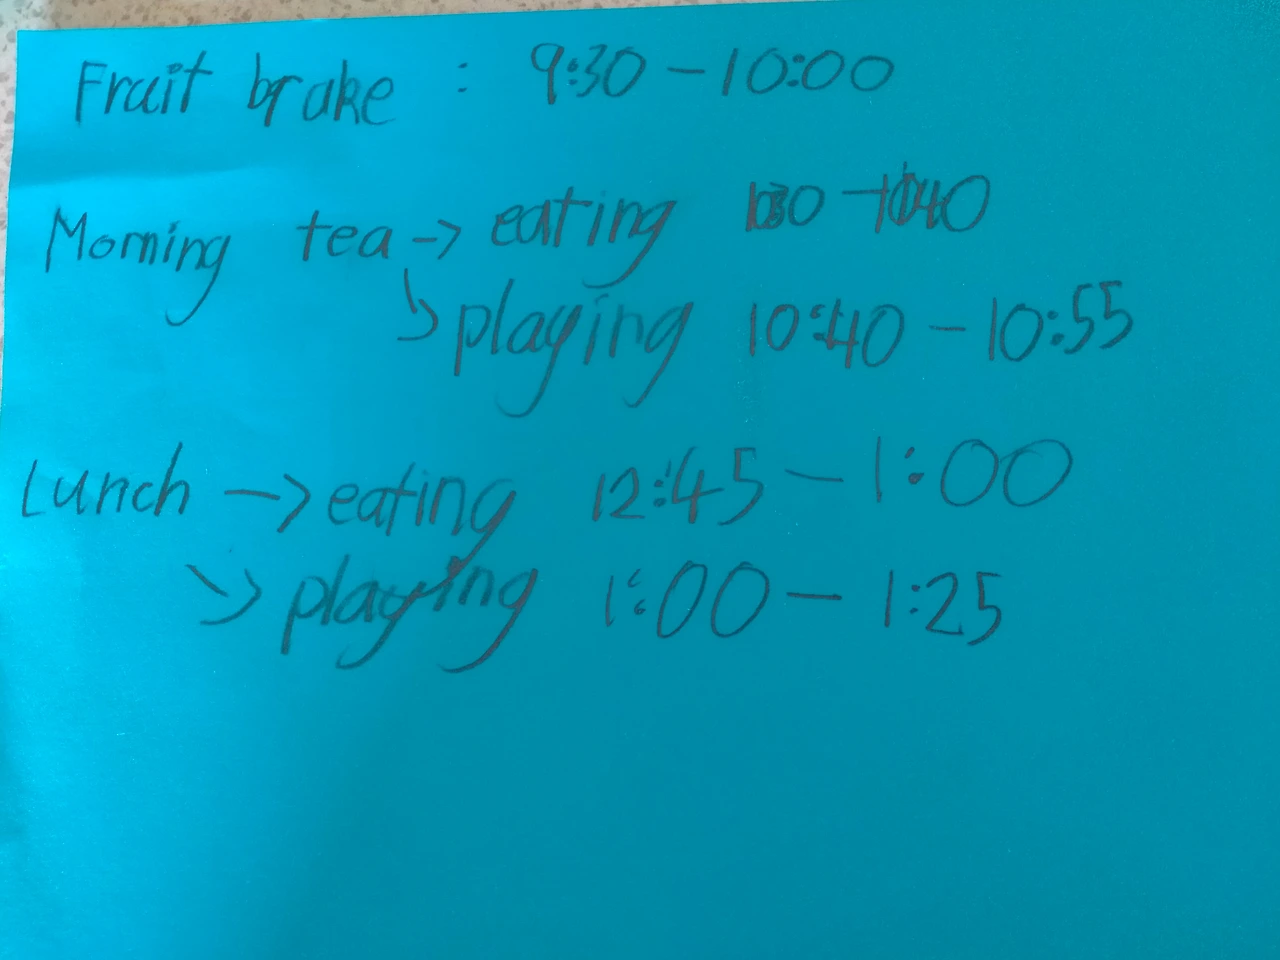 Fruit brake : 9:30 - 10:00
Morning tea -> eating 10:30 - 10:40
↳ playing 10:40 - 10:55
Lunch -> eating 12:45 - 1:00
↘ playing 1:00 - 1:25